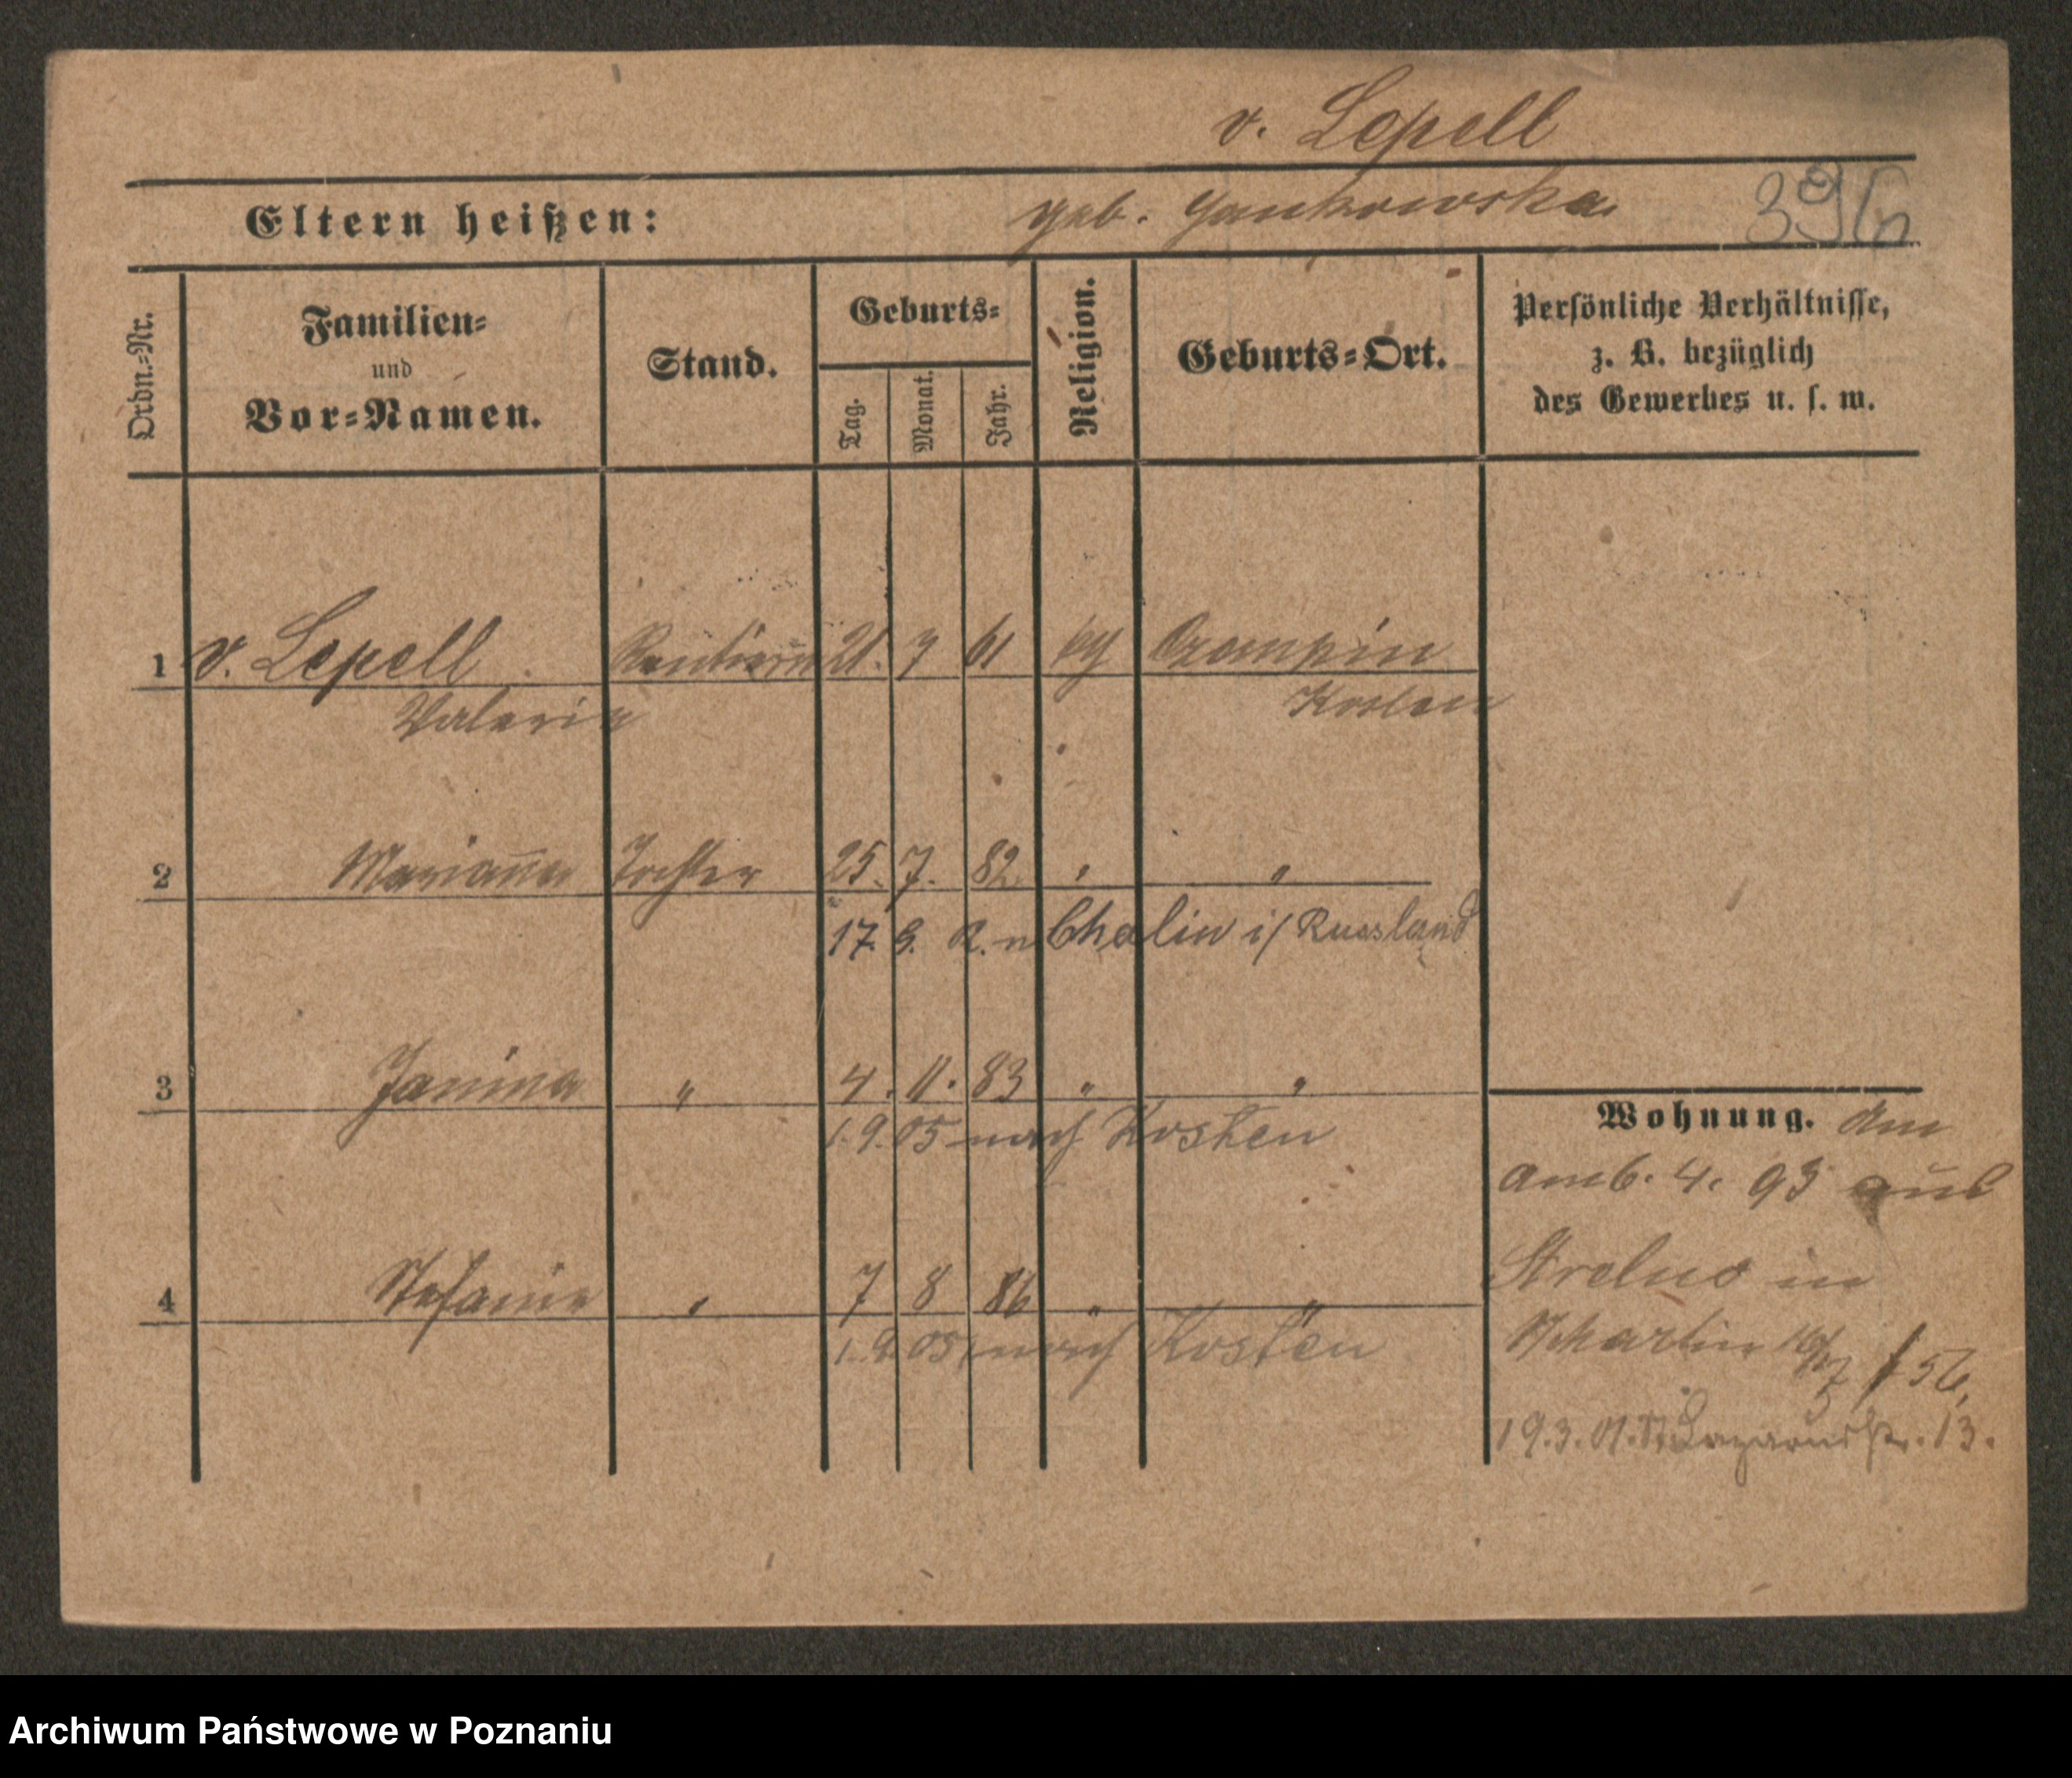 v. Lepell
Eltern heißen: geb. Jankowska
Ordn.-Nr.
Familien-
und
Vor-Namen.
Stand.
Geburts-
Tag.
Monat.
Jahr.
Religion.
Geburts-Ort.
Persönliche Verhältnisse,
z. B. bezüglich
des Gewerbes u. s. w.
1 v. Lepell Rentierin 21. 7 61 Czempin
Valeria Kosten
2 Marianna Tochter 25. 7. 82. " "
17. 9. n Chalin i/ Russland
3 Janina " 4. 11. 83 " "
1. 9. 05 nach Kosten
4 Stefanie " 7 8 86 " "
1. 9. 05 nach Kosten
Wohnung. Am
4. 93 aus
Strelno in
56,
19. 3. 01. Lazarusstr. 13.
Archiwum Państwowe w Poznaniu